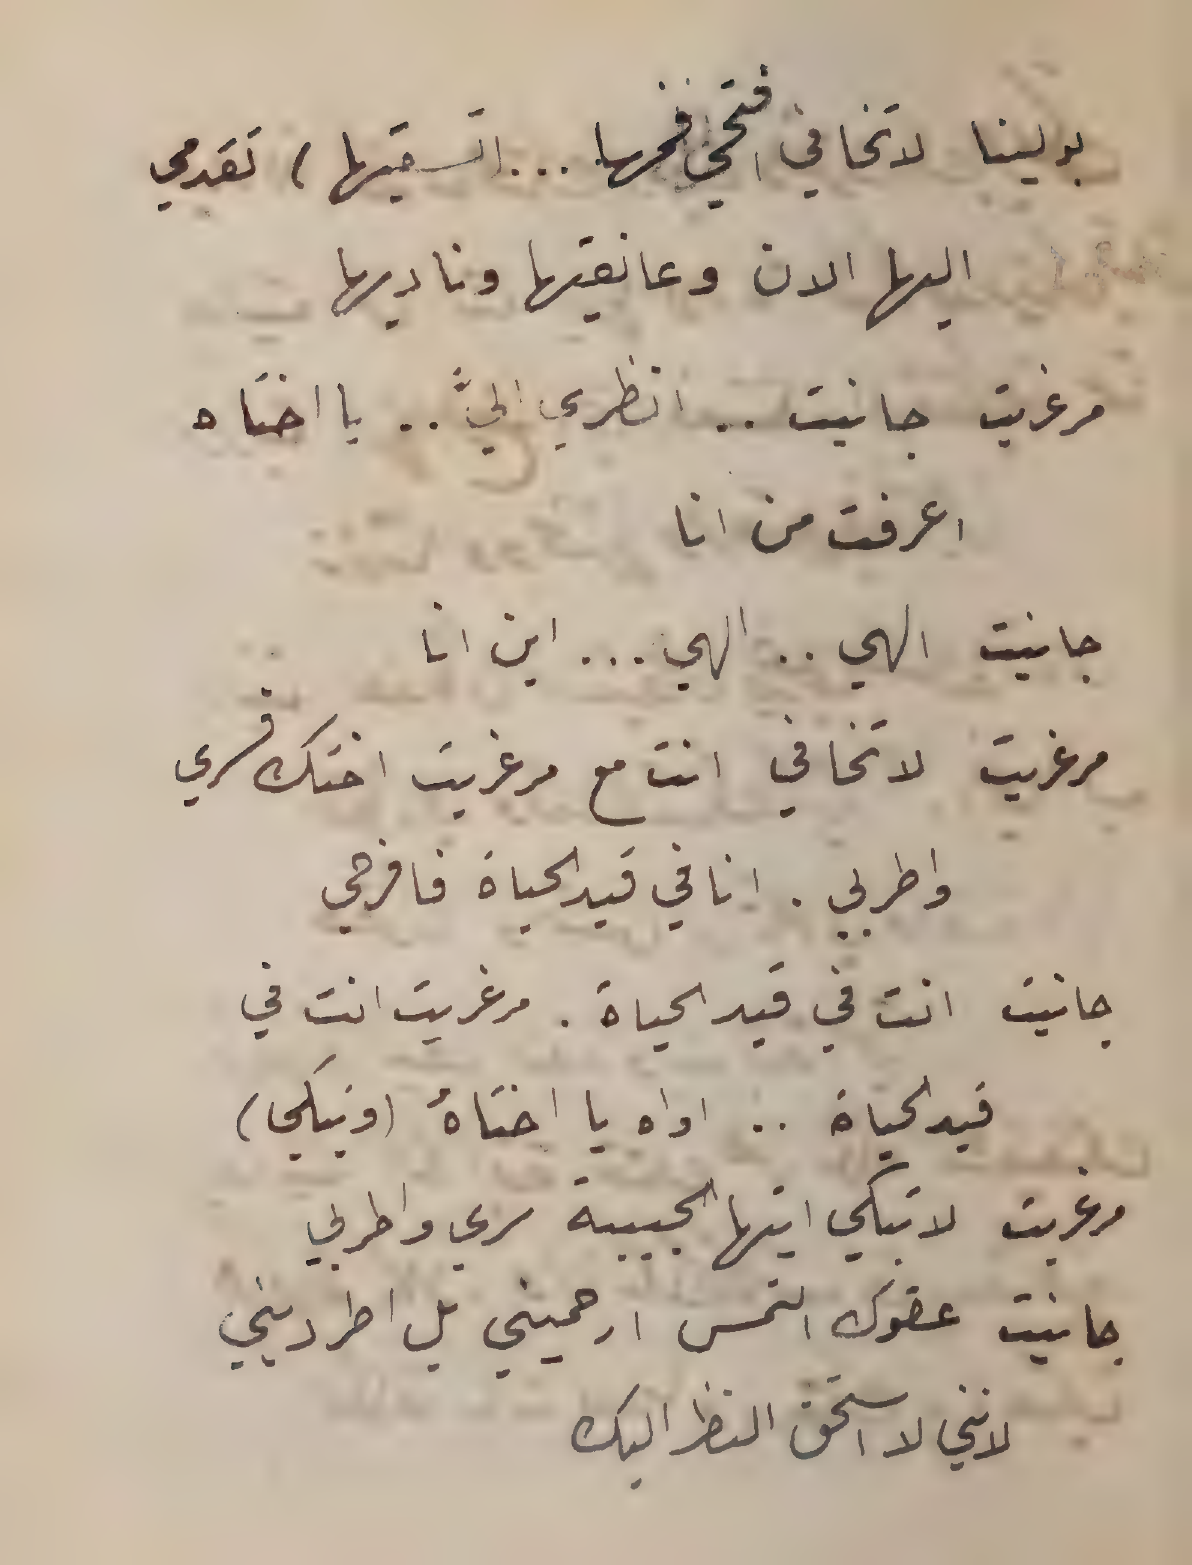 بولينا لا تخافي افتحي فمها ... (تسقيها) تقدمي
اليها الان وعانقيها وناديها
مرغريت جانيت .. انظري اليَّ .. يا اختاه
اعرفت من انا
جانيت الهي .. الهي ... اين انا
مرغريت لا تخافي انت مع مرغريت اختك فسري
واطربي . انا في قيد الحياة فافرحي
جانيت انت في قيد الحياة . مرغريت انت في
قيد الحياة .. اواه يا اختاهُ (وتبكي)
مرغريت لا تبكي ايتها الحبيبة سري واطربي
جانيت عفوك التمس ارحميني بل اطرديني
لانني لا استحق النظر اليك